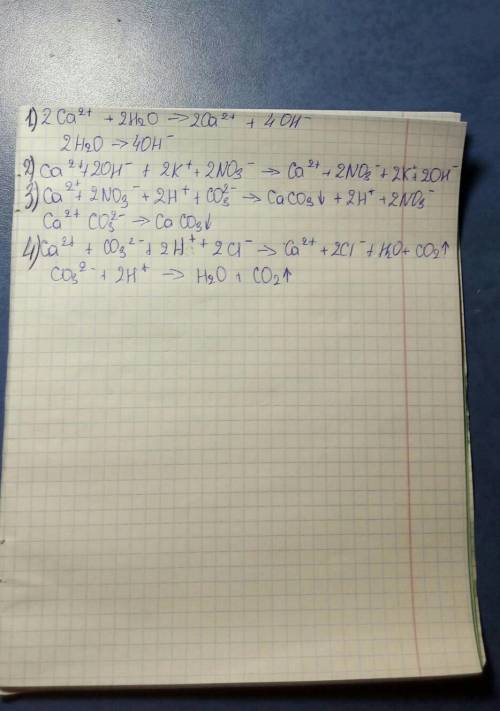 1) 2Ca²⁺ + 2H₂O → 2Ca²⁺ + 4OH⁻
2H₂O → 4OH⁻
2) Ca²⁺+2OH⁻ + 2K⁺+2NO₃⁻ → Ca²⁺+2NO₃⁻+2K⁺+2OH⁻
3) Ca²⁺+2NO₃⁻+2H⁺+CO₃²⁻ → CaCO₃↓ +2H⁺+2NO₃⁻
Ca²⁺ CO₃²⁻ → CaCO₃↓
4) Ca²⁺ + CO₃²⁻+2H⁺+2Cl⁻ → Ca²⁺+2Cl⁻+H₂O+CO₂↑
CO₃²⁻+2H⁺ → H₂O + CO₂↑